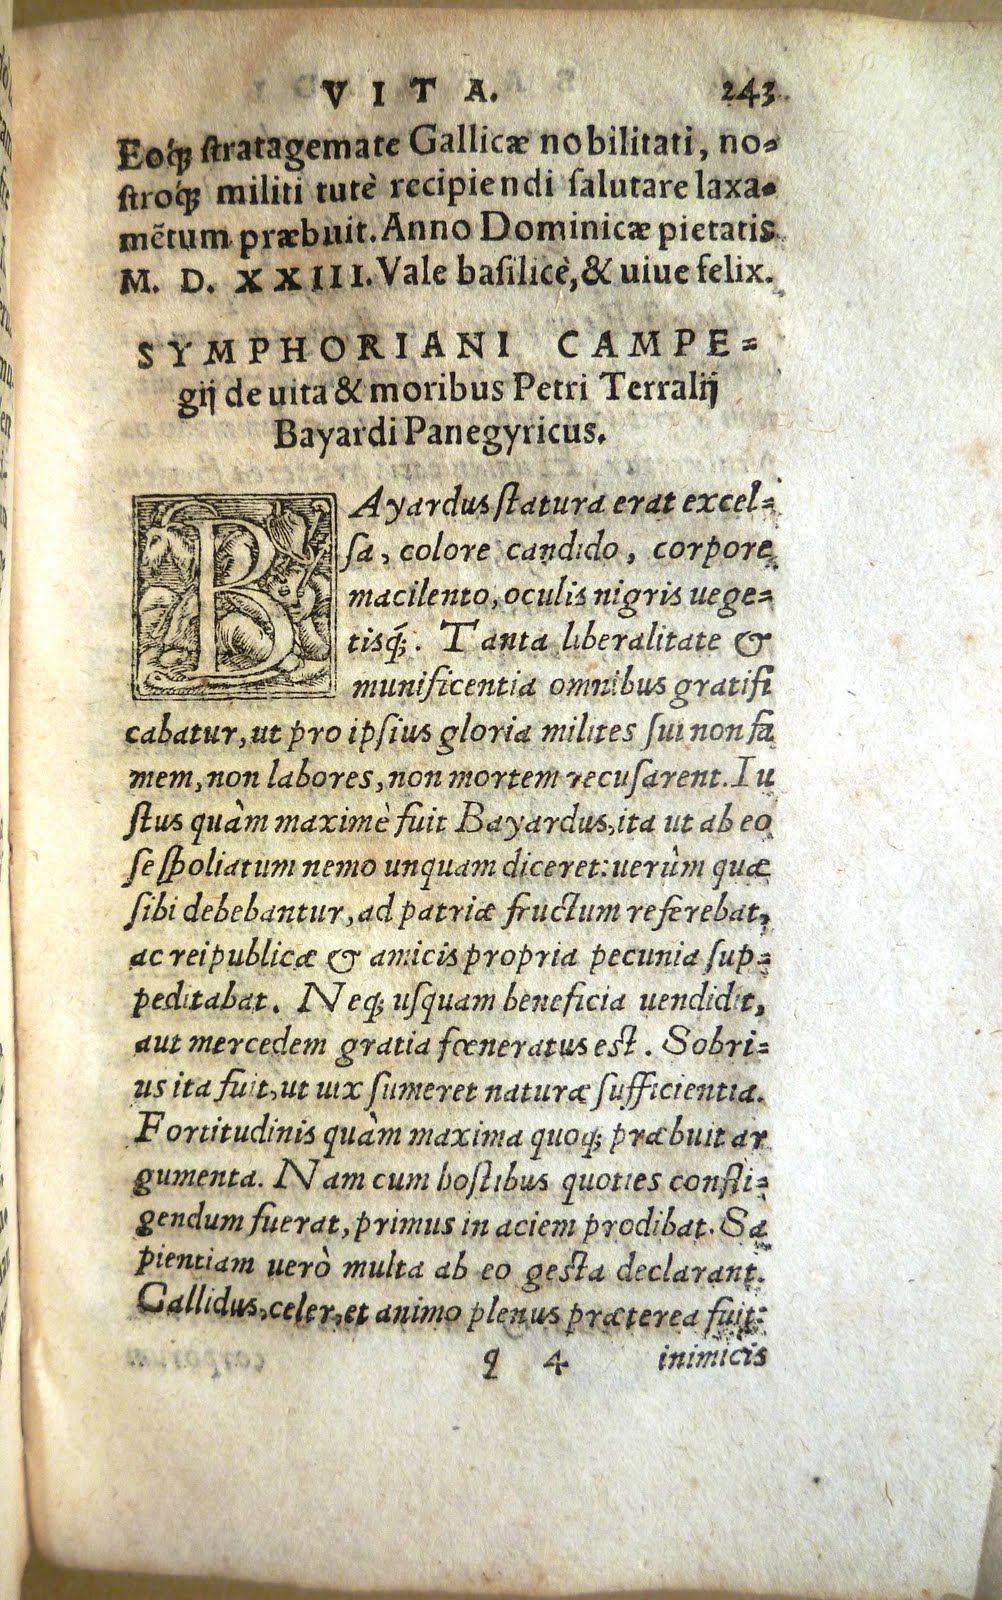 VITA. 243
Eoq́ꝫ stratagemate Gallicæ nobilitati, no-
stroq́ꝫ militi tutè recipiendi salutare laxa-
mẽtum præbuit. Anno Dominicæ pietatis
M. D. XXIII. Vale basilicè, & uiue felix.
SYMPHORIANI CAMPE-
gij de uita & moribus Petri Terralij
Bayardi Panegyricus.
BAyardus statura erat excel-
sa, colore candido, corpore
macilento, oculis nigris uege-
tisq́ꝫ. Tanta liberalitate &
munificentia omnibus gratifi
cabatur, ut pro ipsius gloria milites sui non fa
mem, non labores, non mortem recusarent. Iu
stus quàm maximè fuit Bayardus, ita ut ab eo
se spoliatum nemo unquam diceret: uerùm quæ
sibi debebantur, ad patriæ fructum referebat,
ac reipublicæ & amicis propria pecunia sup-
peditabat. Neqꝫ usquam beneficia uendidit,
aut mercedem gratia fœneratus est. Sobri-
us ita fuit, ut uix sumeret naturæ sufficientia.
Fortitudinis quàm maxima quoqꝫ præbuit ar
gumenta. Nam cum hostibus quoties confli-
gendum fuerat, primus in aciem prodibat. Sa
pientiam uerò multa ab eo gesta declarant.
Callidus, celer, et animo plenus præterea fuit:
q 4 inimicis